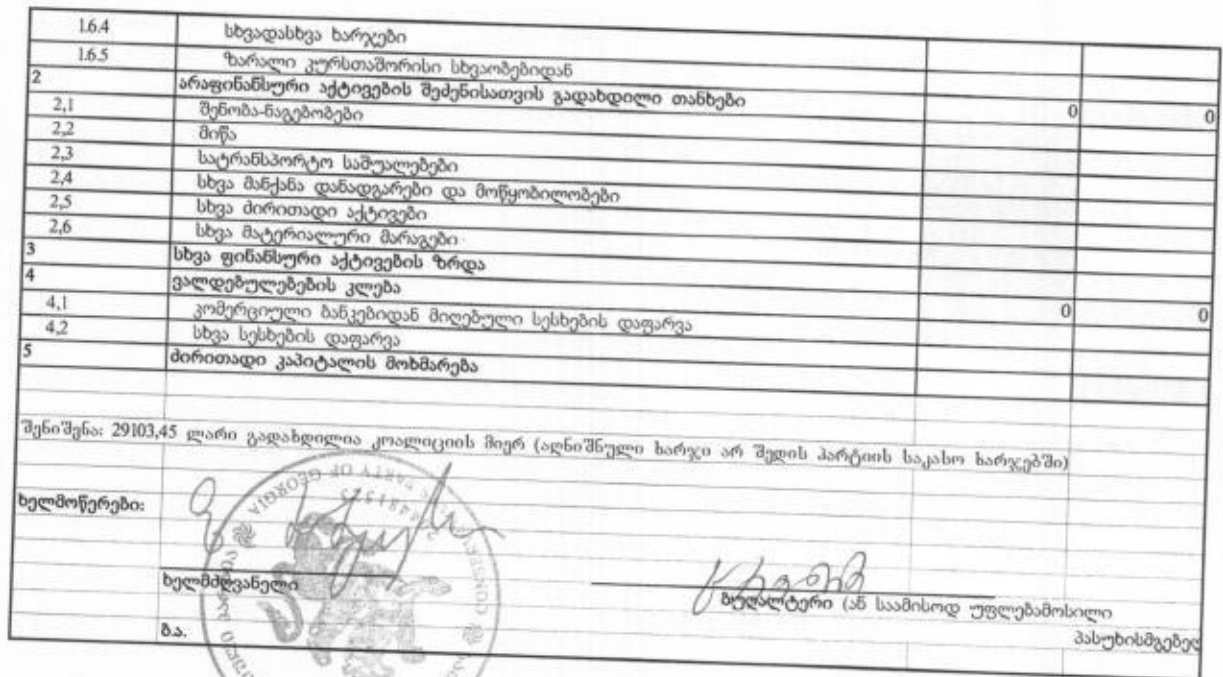 1.6.4 სხვადასხვა ხარჯები
1.6.5 ზარალი კურსთაშორისი სხვაობებიდან
2 არაფინანსური აქტივების შეძენისათვის გადახდილი თანხები 0 0
2,1 შენობა-ნაგებობები
2,2 მიწა
2,3 სატრანსპორტო საშუალებები
2,4 სხვა მანქანა დანადგარები და მოწყობილობები
2,5 სხვა ძირითადი აქტივები
2,6 სხვა მატერიალური მარაგები
3 სხვა ფინანსური აქტივების ზრდა
4 ვალდებულებების კლება 0 0
4,1 კომერციული ბანკებიდან მიღებული სესხების დაფარვა
4,2 სხვა სესხების დაფარვა
5 ძირითადი კაპიტალის მოხმარება
შენიშვნა: 29103,45 ლარი გადახდილია კოალიციის მიერ (აღნიშნული ხარჯი არ შედის პარტიის საკასო ხარჯებში)
PARTY OF GEORGIA
ხელმოწერები:
ხელმძღვანელი
ბუღალტერი (ან საამისოდ უფლებამოსილი
პასუხისმგებელ
ბ.ა.